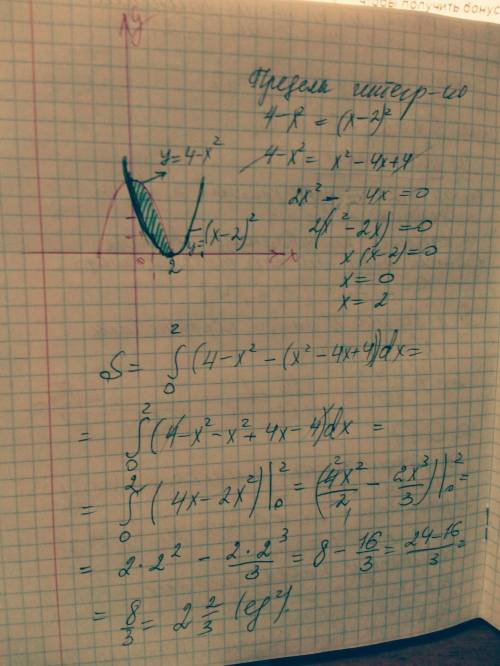 чтобы получить бонус
y
Пределы интегр-ию
4-x² = (x-2)²
y=4-x²
4-x² = x² - 4x+4
2x² - 4x = 0
2(x² - 2x) = 0
y=(x-2)²
x
x(x-2)=0
0
2
x = 0
x = 2
S = ∫₀² (4-x² - (x² - 4x+4))dx=
= ∫₀² (4-x²-x²+4x-4)dx =
= ∫₀² (4x-2x²)|₀² = (4x²/2 - 2x³/3)|₀² =
= 2·2² - 2·2³/3 = 8 - 16/3 = 24-16/3 =
= 8/3 = 2 2/3 (ед²).